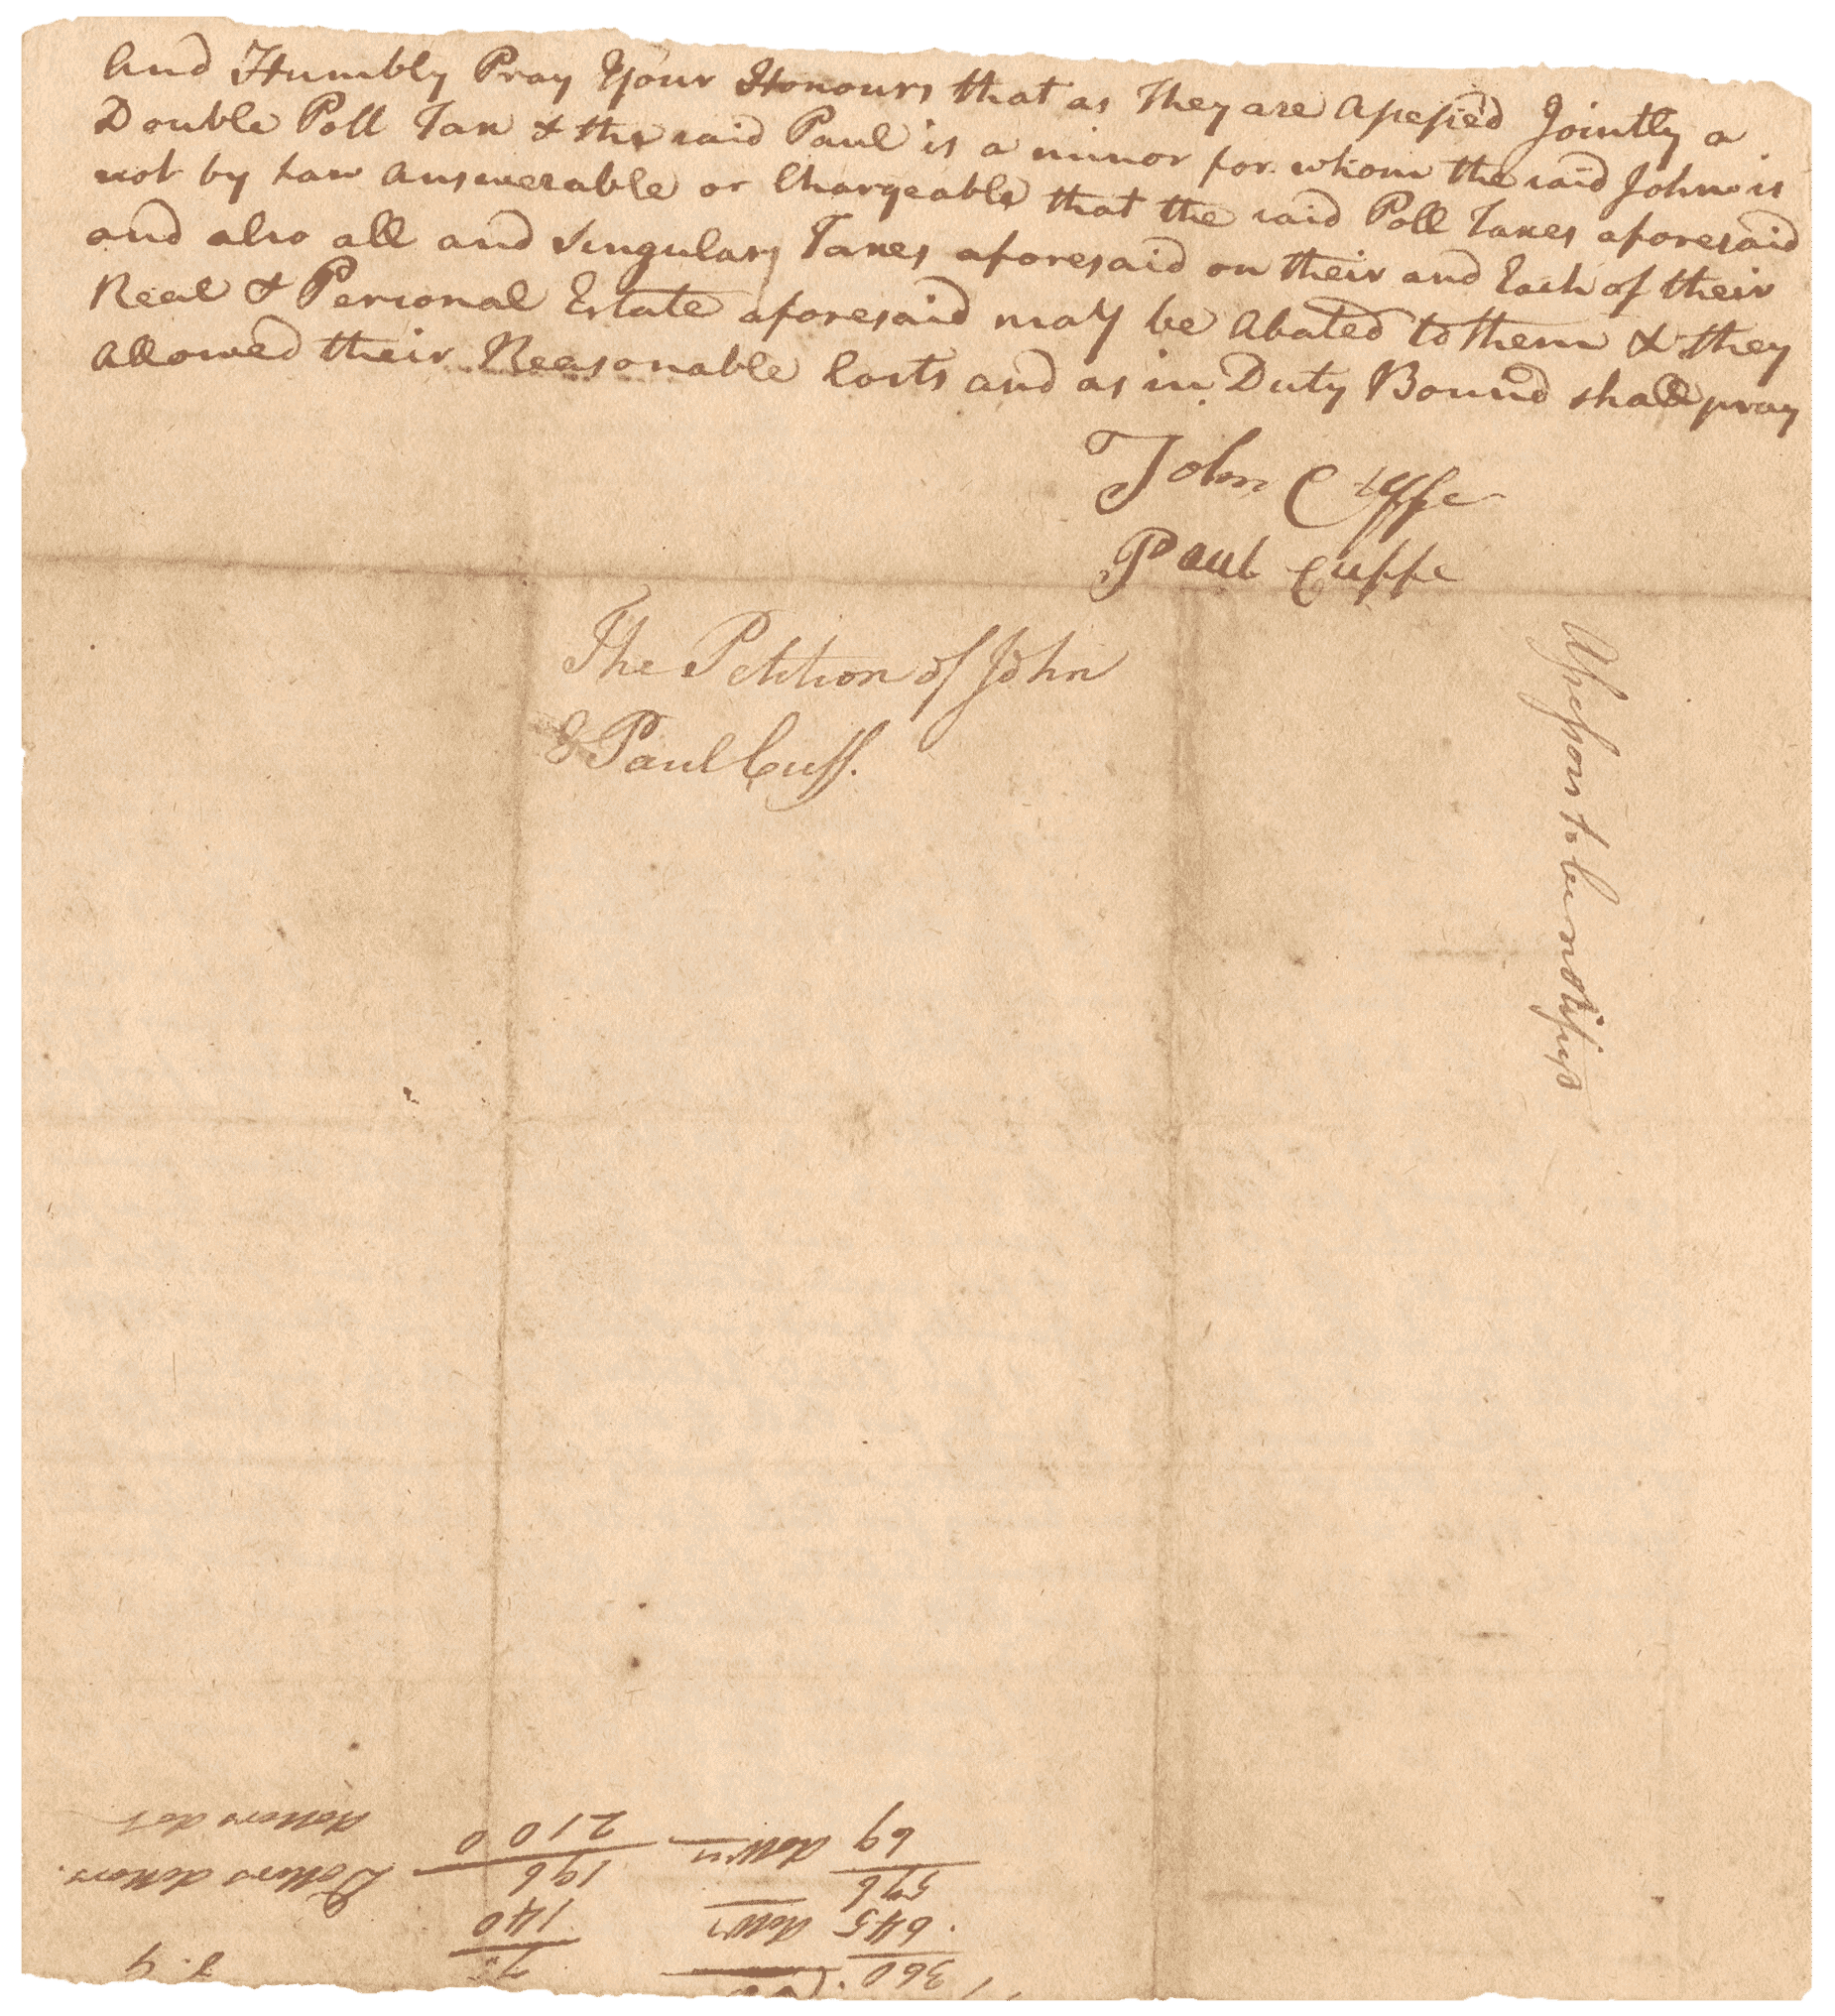 And Humbly Pray Your Honours that as They are Assessed Jointly a
Double Poll Tax & the said Paul is a minor for whom the said John is
not by Law Answerable or Chargeable that the said Poll Taxes aforesaid
and also all and Singulary Taxes aforesaid on their and Each of their
Real & Personal Estate aforesaid may be Abated to them & they
Allowed their Reasonable Costs and as in Duty Bound shall pray
John Cuffe
Paul Cuffe
The Petition of John
& Paul Cuff.
Assessors to be notifyd
360
645
576
69
70
140
196
2100
Dollers dollers.